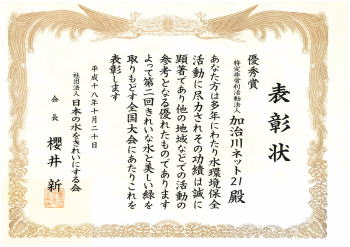 表彰状
優秀賞
特定非営利活動法人 加治川ネット21殿
あなた方は多年にわたり水環境保全
活動に尽力されその功績は誠に
顕著であり他の地域などでの活動の
参考となる優れたものであります
よって第二回きれいな水と美しい緑を
取りもどす全国大会にあたりこれを
表彰します
平成十八年十月二十日
社団法人 日本の水をきれいにする会
会長 櫻井 新